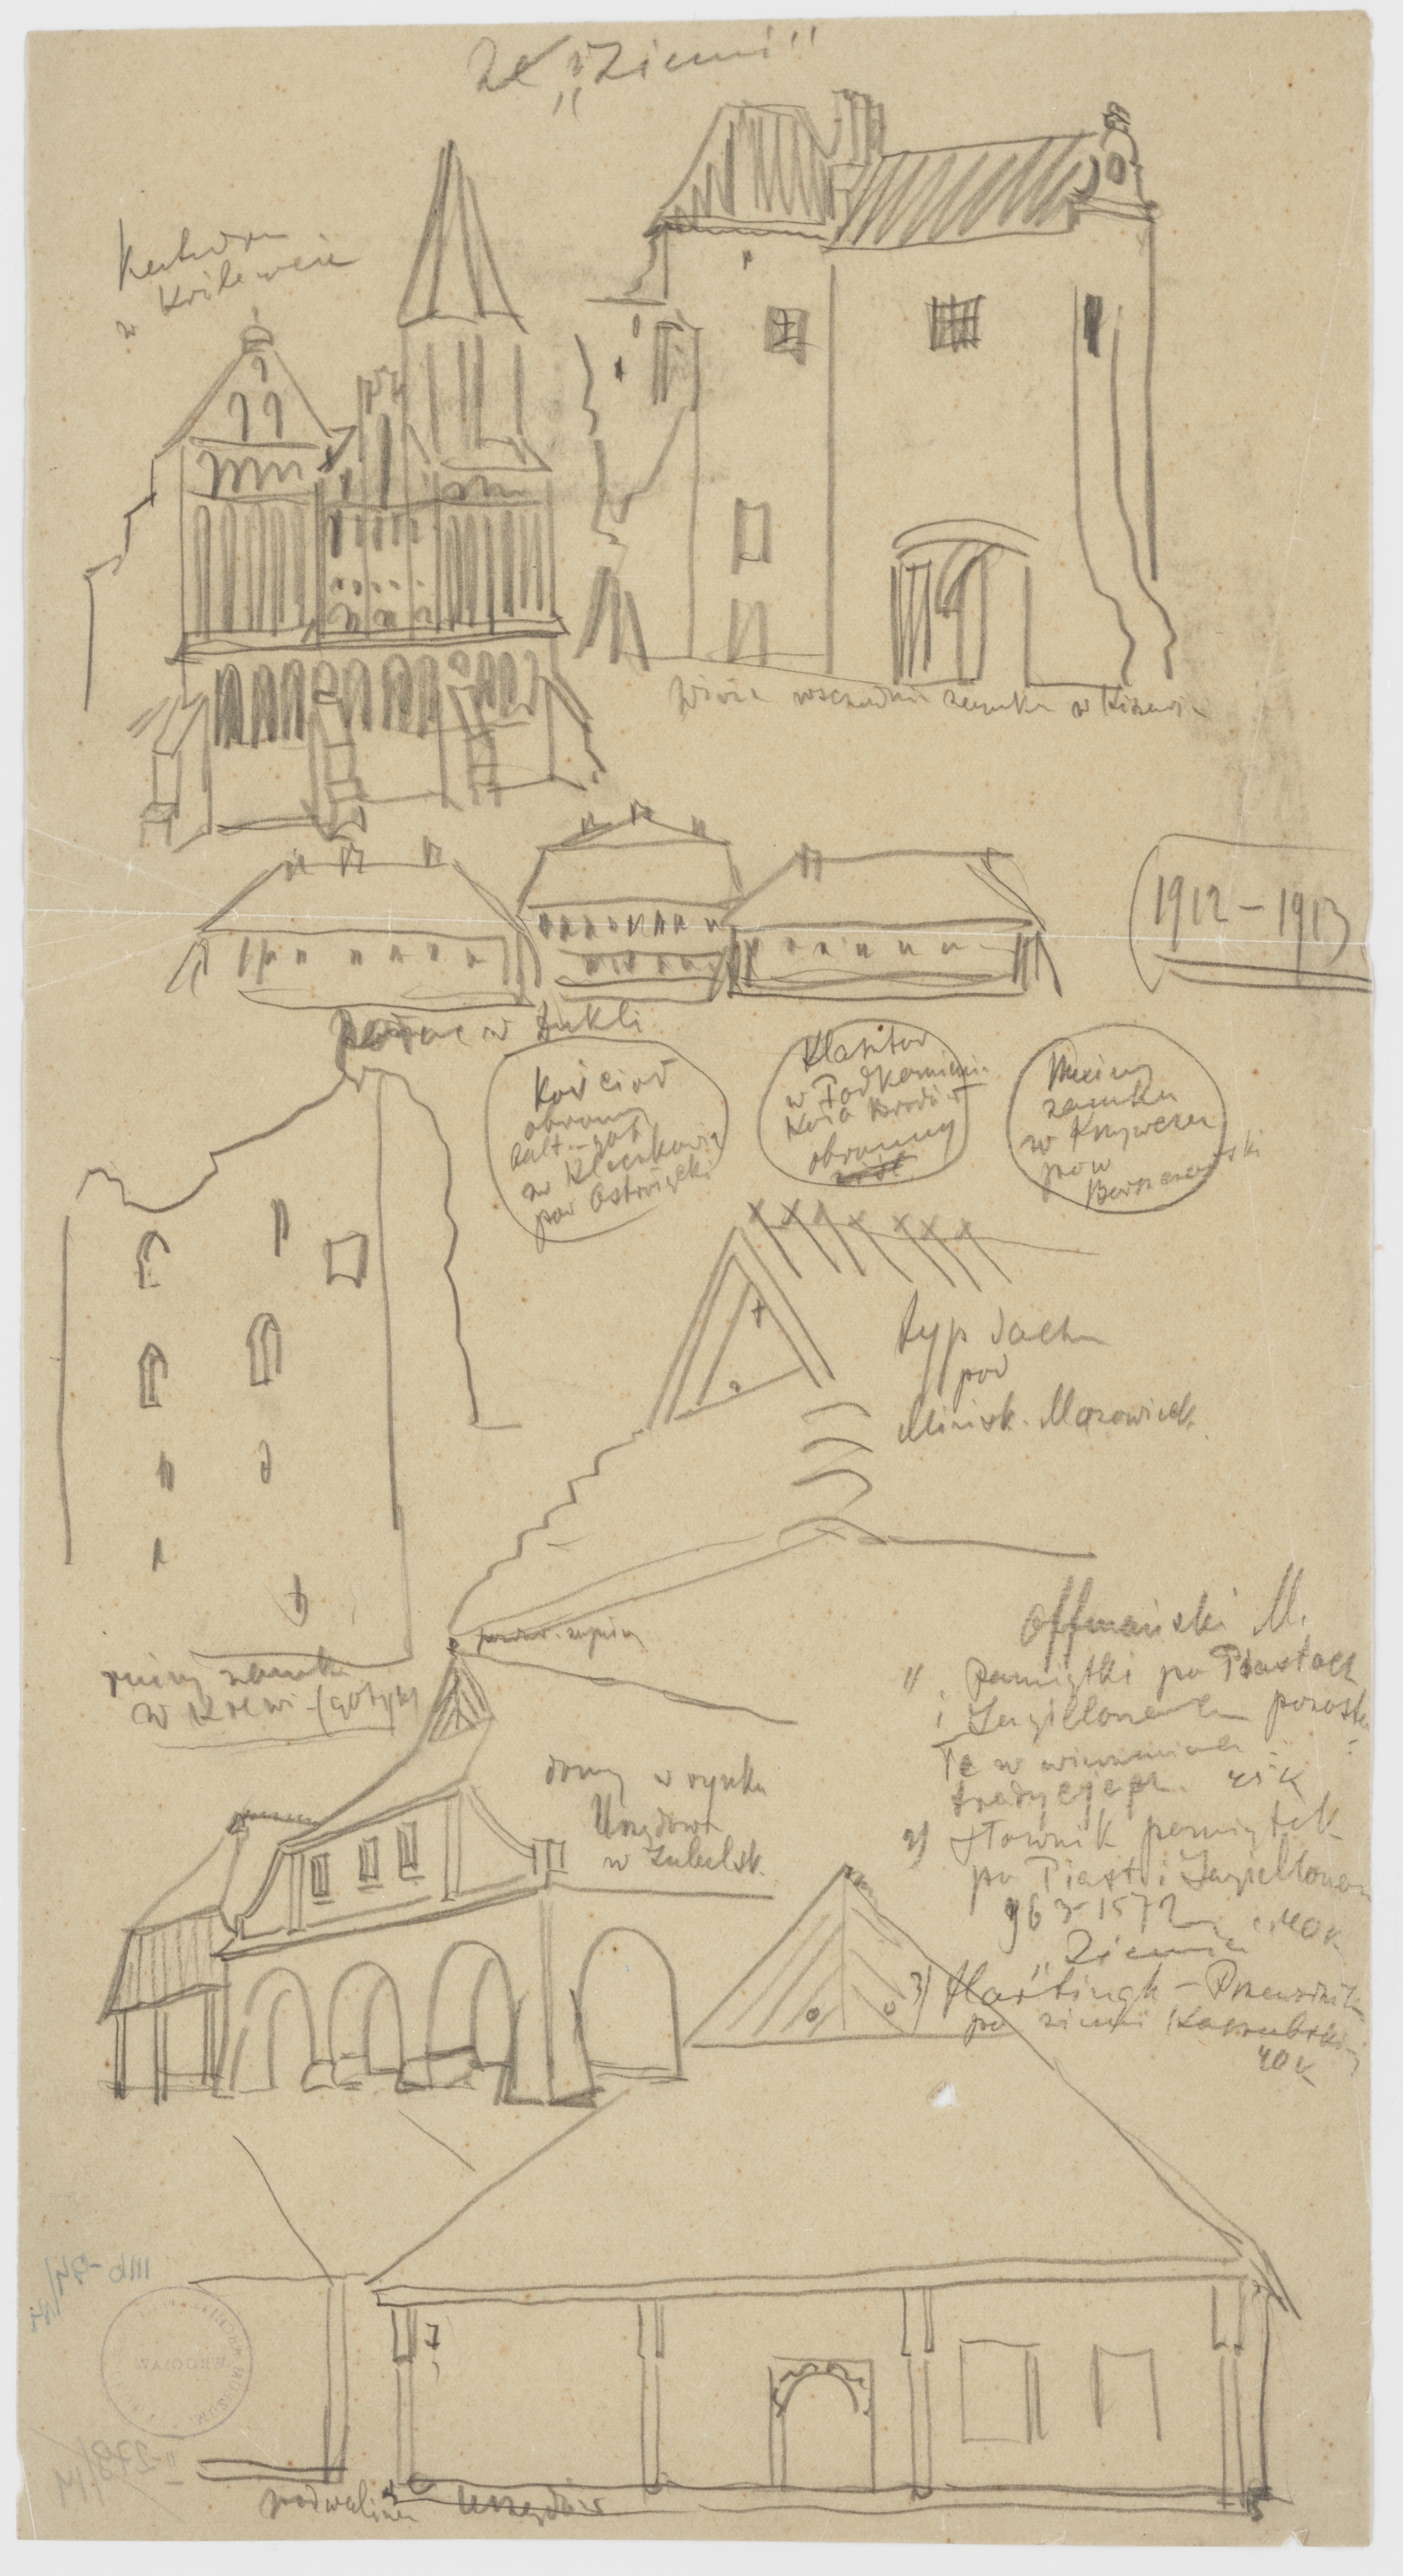 Ze „Ziemi"
Katedra
w Królewcu
Wieża wschodnia zamku w
1912-1913
Pałac w Dukli
Kościół
obronny
w
pow Ostrołęcki
Klasztor
w Podkamieniu
koło Brodów
obronny
Ruiny
zamku
w Krzywczu
pow
Borszczowski
typ dachu
pod
Mińsk. Mazowieck.
ruiny zamku
w Krewi (gotyk)
domy w rynku
Urzędowa
w Lubelsk.
Offmański M.
1) Pamiątki po Piastach
i Jagiellonach pozosta
łe w
tradycyach. 45 K
2) Słownik pamiątek
po Piast. i Jagiellonach
963-1572 40 K
„Ziemia"
3) - Przewodnik
po ziemi Kaszubskiej
40 K
podwalina Urzędów